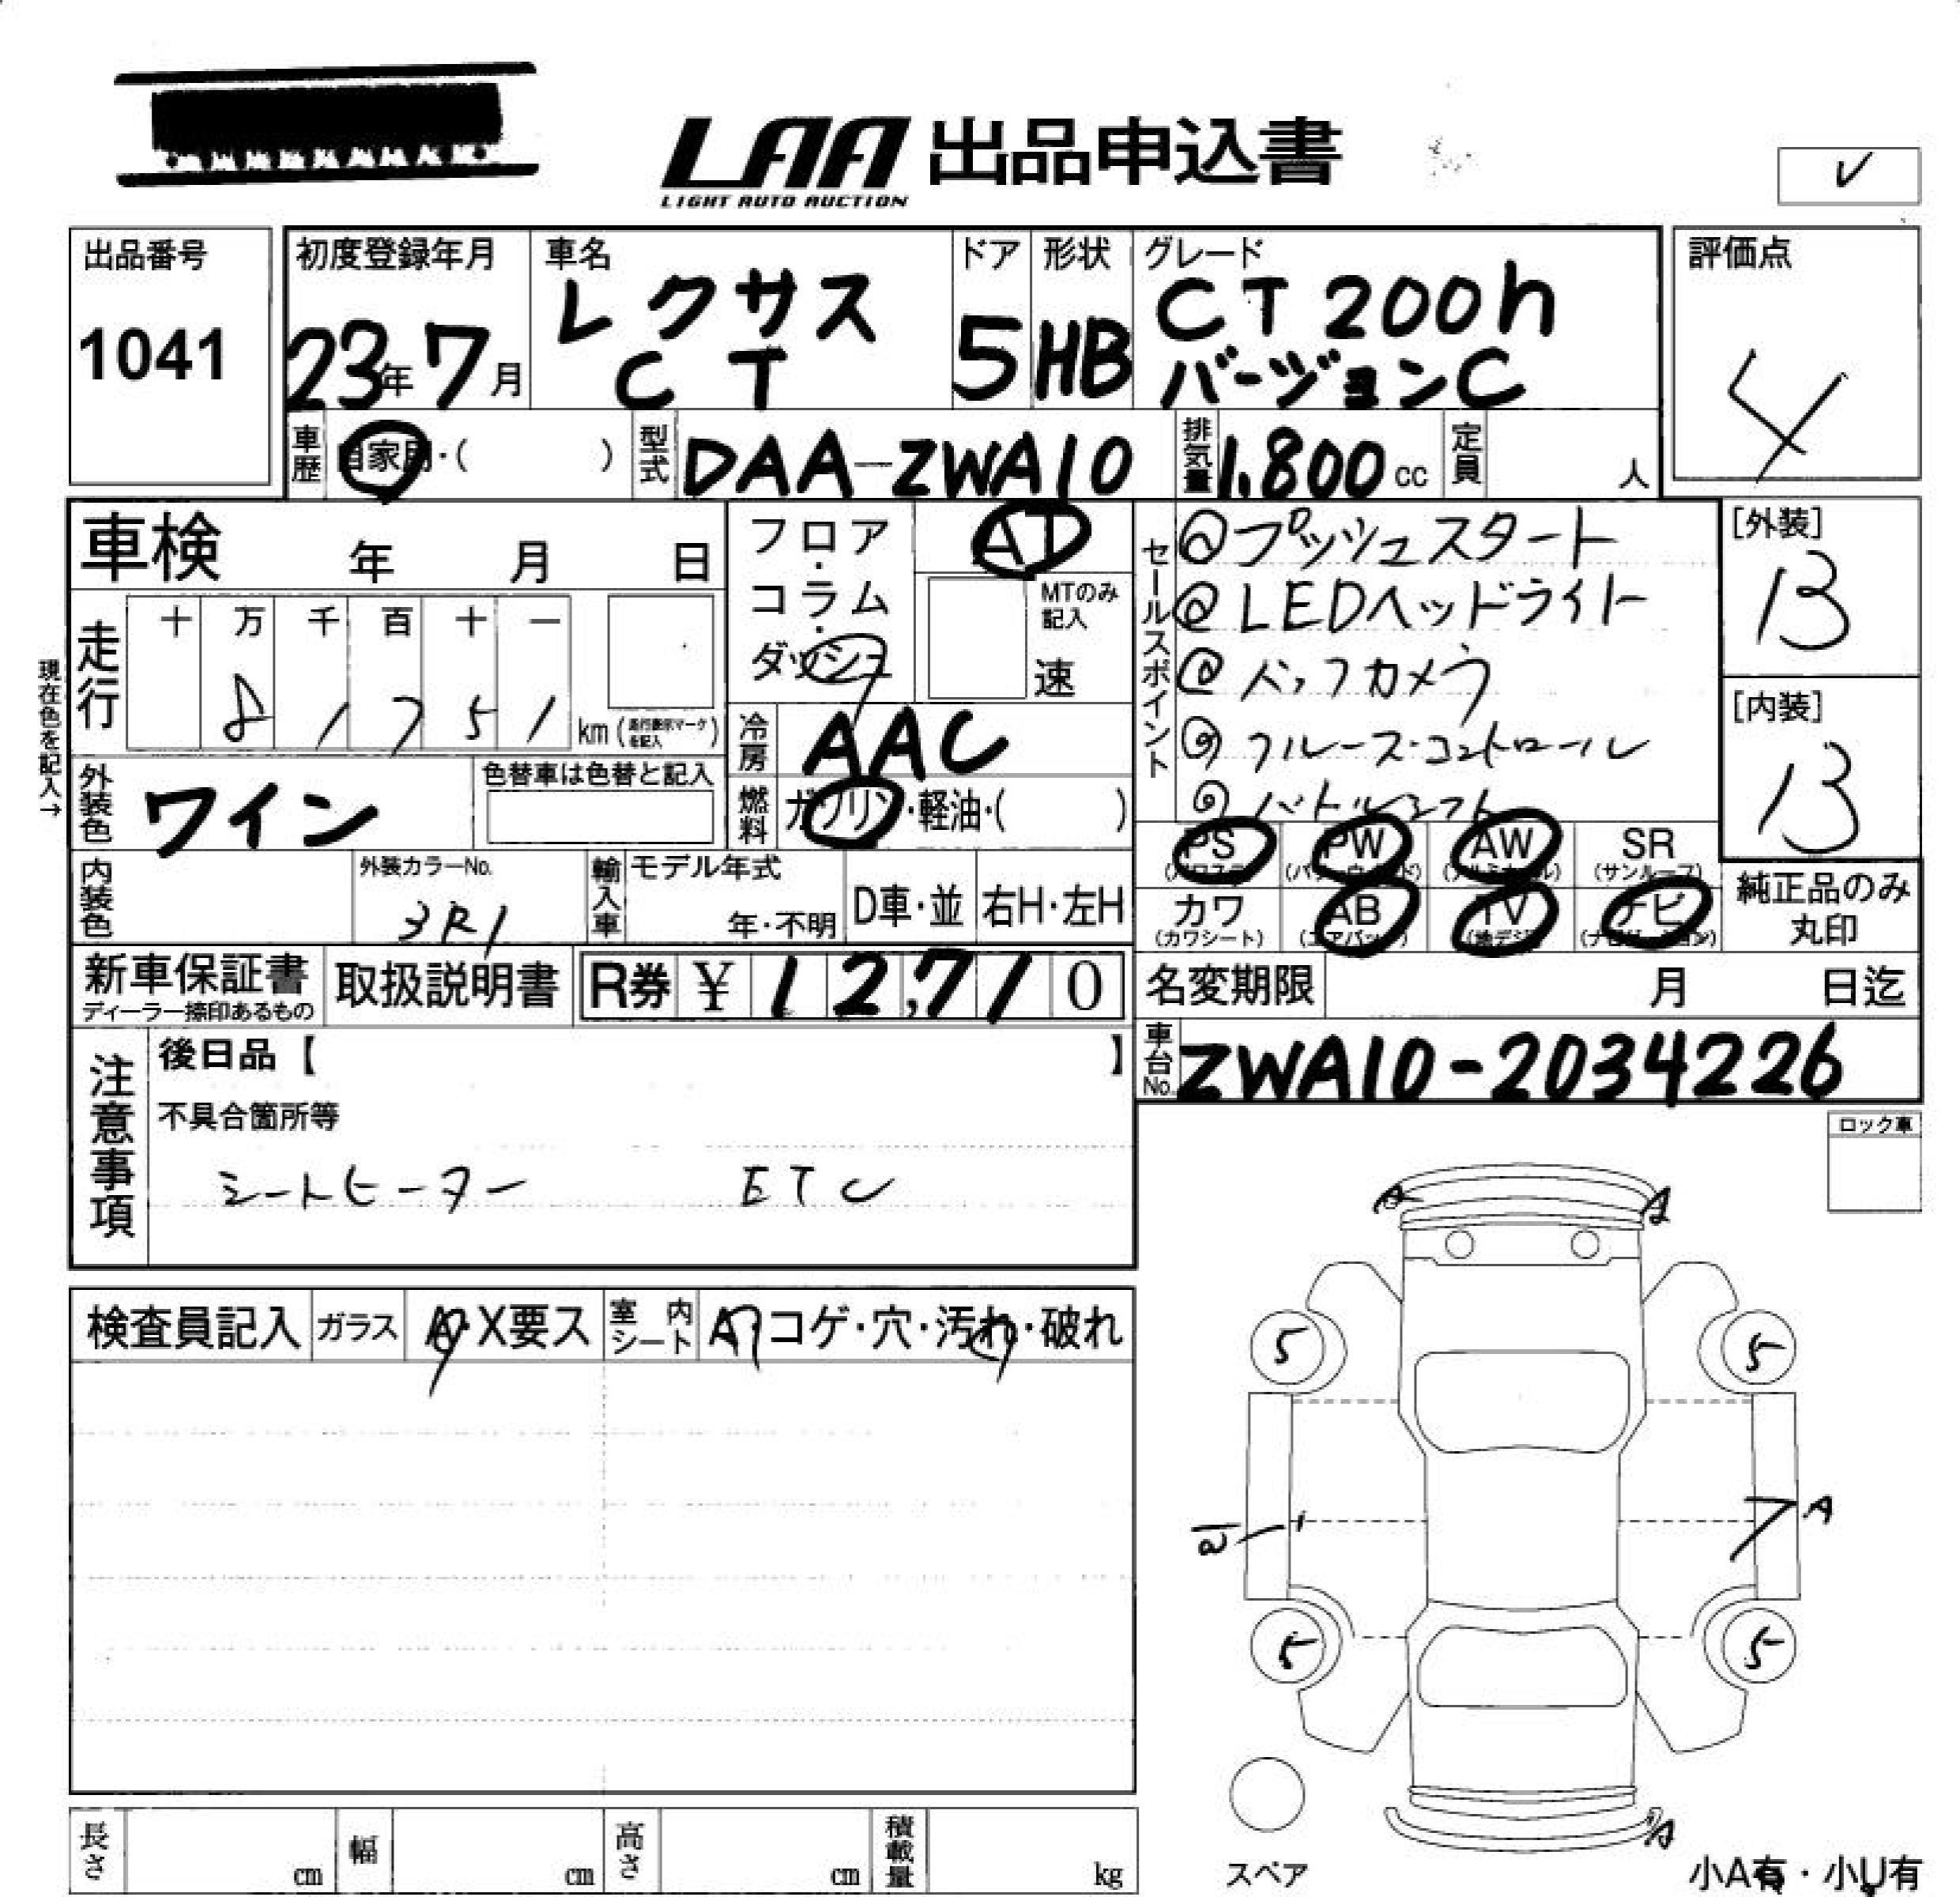 LAA 出品申込書
LIGHT AUTO AUCTION
出品番号
1041
初度登録年月
23年7月
車名
レクサス
CT
ドア
5
形状
HB
グレード
CT 200h
バージョンC
評価点
4
車歴 自家用・( )
型式 DAA-ZWA10
排気量 1.800 cc
定員 人
車検 年 月 日
フロア・コラム・ダッシュ
AT
MTのみ記入
速
セールスポイント
@プッシュスタート
@LEDヘッドライト
@バックカメラ
@クルーズ・コントロール
@パドルシフト
[外装]
B
[内装]
B
現在色を記入→
走行
十 万 千 百 十 一
8 1 7 5 1 km (走行表示マークを記入)
冷房 AAC
外装色 ワイン
色替車は色替と記入
燃料 ガソリン・軽油・( )
PS (パワステ)
PW (パワーウィンド)
AW (アルミホイル)
SR (サンルーフ)
カワ (カワシート)
AB (エアバック)
TV (地デジ)
ナビ (ナビゲーション)
純正品のみ
丸印
内装色
外装カラーNo.
3R1
輸入車 モデル年式
年・不明
D車・並
右H・左H
新車保証書
ディーラー捺印あるもの
取扱説明書
R券 ¥ 12,710
名変期限 月 日迄
車台No. ZWA10-2034226
注意事項
後日品【 】
不具合箇所等
シートヒーター ETC
ロック車
検査員記入
ガラス A・X要ス
室内シート A・コゲ・穴・汚れ・破れ
A A
5 5
A
5 5
A
スペア
小A有・小U有
長さ cm
幅 cm
高さ cm
積載量 kg